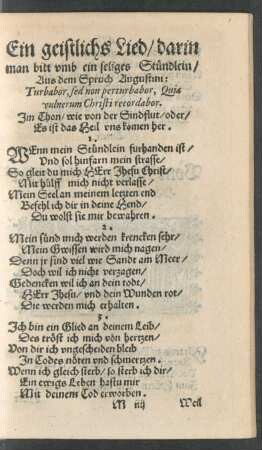 Ein geistlichs Lied/ darin
man bitt vmb ein seliges Stündlein/
Aus dem Spruch Augustini:
Turbabor, sed non perturbabor, Quia
vulnerum Christi recordabor.
Im Thon/ wie von der Sindflut/ oder/
Es ist das Heil vns komen her.
1.
WEnn mein Stündlein furhanden ist/
Vnd sol hinfarn mein strasse/
So gleit du mich HErr Jhesu Christ/
Mit hülff mich nicht verlasse/
Mein Seel an meinem letzten end
Befehl ich dir in deine Hend/
Du wolst sie mir bewahren.
2.
Mein sünd mich werden krencken sehr/
Mein Gwissen wird mich nagen/
Denn jr sind viel wie Sandt am Meer/
Doch wil ich nicht verzagen/
Gedencken wil ich an dein todt/
HErr Jhesu/ vnd dein Wunden rot/
Die werden mich erhalten.
3.
Ich bin ein Glied an deinem Leib/
Des tröst ich mich von hertzen/
Von dir ich vngescheiden bleib
In Todes nöten vnd schmertzen.
Wenn ich gleich sterb/ so sterb ich dir/
Ein ewigs Leben hastu mir
Mit deinem Tod erworben.
M iij Weil